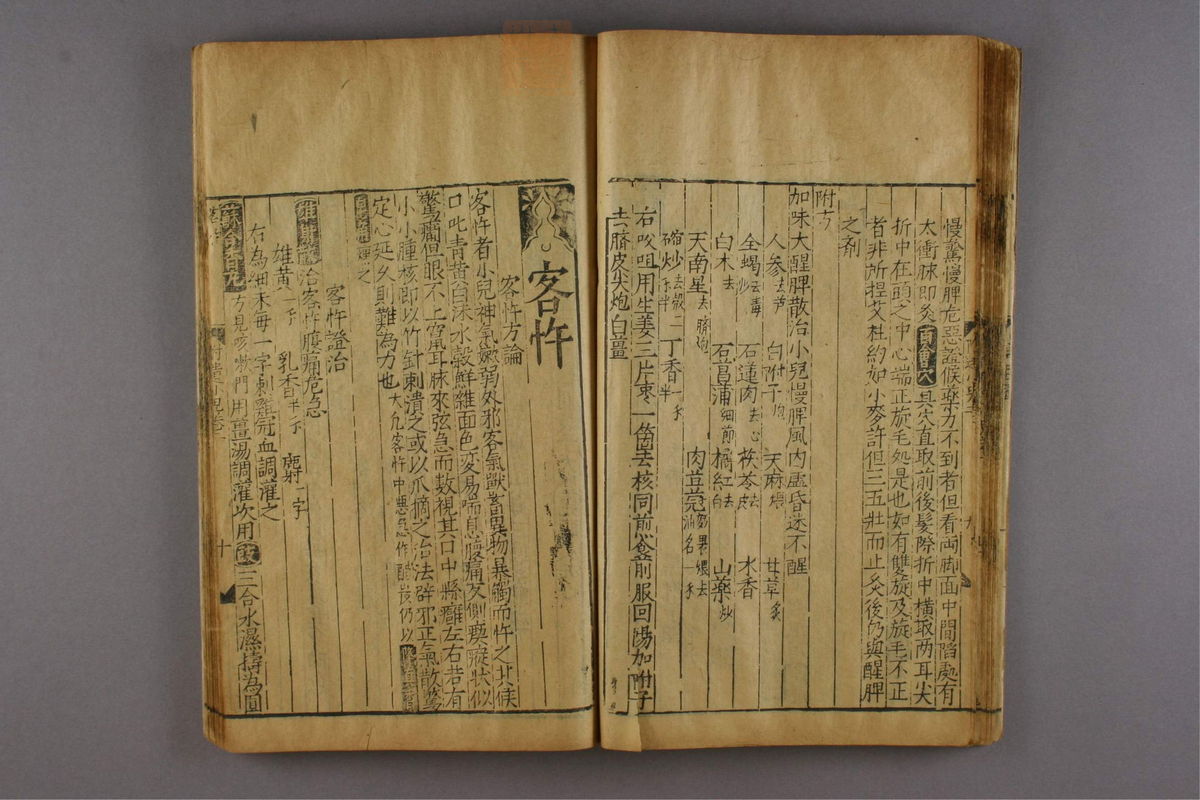 慢驚慢脾危惡證候藥力不到者但看両脚面中間陷處有
太衝脉即灸百會穴其穴直取前後髮際折中横取两耳尖
折中在頭之中心端正旋毛処是也如有雙旋及旋毛不正
者非所捏艾杜約如小麥許但三五壯而止灸後仍與醒脾
之剤
附方
加味大醒脾散治小兒慢脾風内虚昏迷不醒
人参去芦 白附子炮 天麻煨 甘草炙
全蝎去毒炒 石蓮肉去心 茯苓去皮 木香
白木去 石菖蒲細節 橘紅去白 山藥炒
天南星去臍炮 肉荳蔲
丁香
右㕮咀用生姜三片枣一箇去核同煎食前服回陽加附子
去臍皮尖炮白薑
客忤
客忤方論
客忤者小兒神氣嫩弱外邪客氣獸畜異物暴觸而忤之其候
口吐青黄白沫水穀鮮雜面色變易喘息腹痛反側瘈瘲状似
驚癇但眼不上竄耳脉來弦急而数視其口中懸癰左右若有
小小腫核即以竹針刺潰之或以爪摘之治法辟邪正氣散驚
定心延久則難為力也大凡客忤中惡急作仍以
客忤證治
治客忤腹痛危急
雄黄一錢 乳香半錢 麝一字
右為細末毎一字刺雞冠血調灌之
蘇合香丸方見咳嗽門用薑湯調灌次用三合水濕擣為圓
十